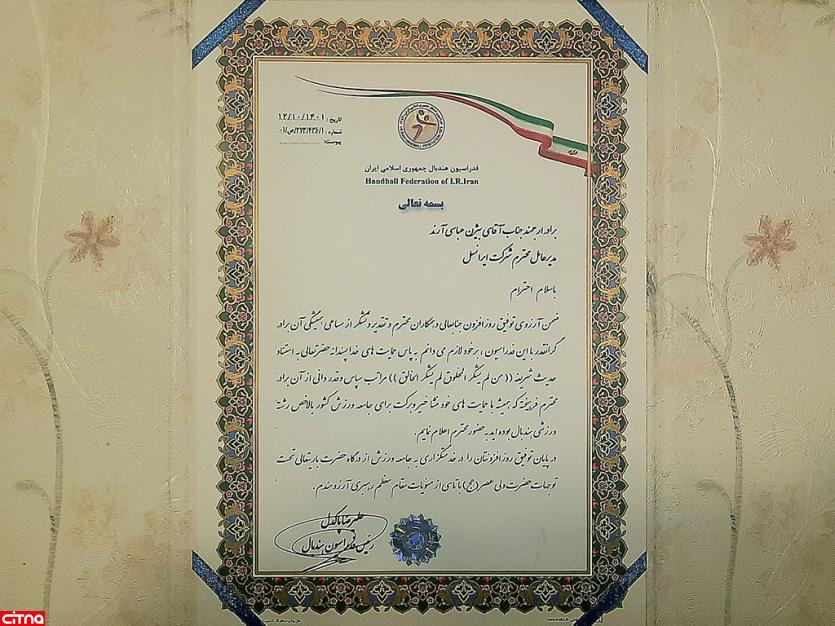 تاریخ: ۱۲/۱۰/۱۴۰۱
شماره: ۰۱/ص/۲۷۳/۴۳۶/۱
پیوست:
فدراسیون هندبال جمهوری اسلامی ایران
Handball Federation of I.R.Iran
بسمه تعالی
برادر ارجمند جناب آقای بیژن عباسی آرند
مدیرعامل محترم شرکت ایرانسل
باسلام احترام
ضمن آرزوی توفیق روزافزون جنابعالی و همکاران محترم و تقدیر و تشکر از مساعی همیشگی آن برادر
گرانقدر با این فدراسیون ، برخود لازم می دانم به پاس حمایت های خداپسندانه حضرتعالی به استناد
حدیث شریفه ((من لم یشکر المخلوق لم یشکر الخالق)) مراتب سپاس و قدردانی از آن برادر
محترم فرهیخته که همیشه با حمایت های خود منشا خیر و برکت برای جامعه ورزش کشور بالاخص رشته
ورزشی هندبال بوده اید به حضور محترم اعلام نمایم.
در پایان توفیق روزافزونتان را در خدمتگزاری به جامعه ورزش از درگاه حضرت باریتعالی تحت
توجهات حضرت ولی عصر(عج) با تاسی از منویات مقام معظم رهبری آرزومندم.
علیرضا پاکدل
رئیس فدراسیون هندبال
citna